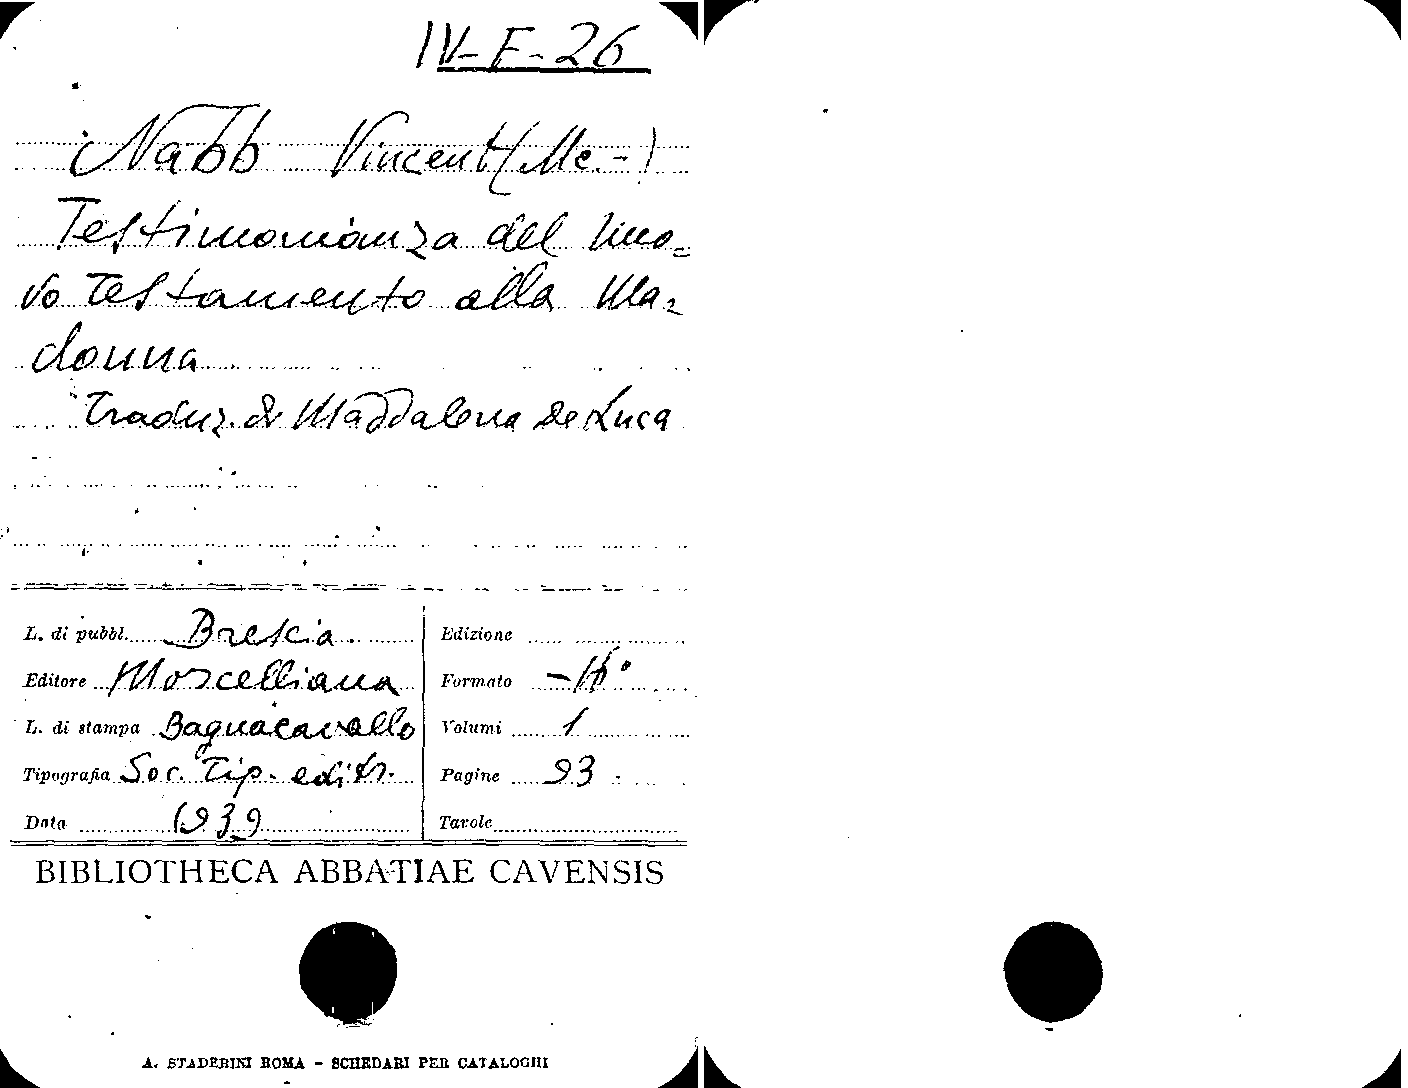 IV-F-26
Nabb Vincent (Mc.-)
Testimonianza del Nuo=
vo Testamento alla Ma=
donna
Traduz. di Maddalena De Luca
L. di pubbl. Brescia
Edizione
Editore Morcelliana
Formato
L. di stampa Bagnacavallo
Volumi 1
Tipografia Soc. Tip. editr.
Pagine 93
Data 1939
Tavole
BIBLIOTHECA ABBATIAE CAVENSIS
A. STADERINI ROMA - SCHEDARI PER CATALOGHI